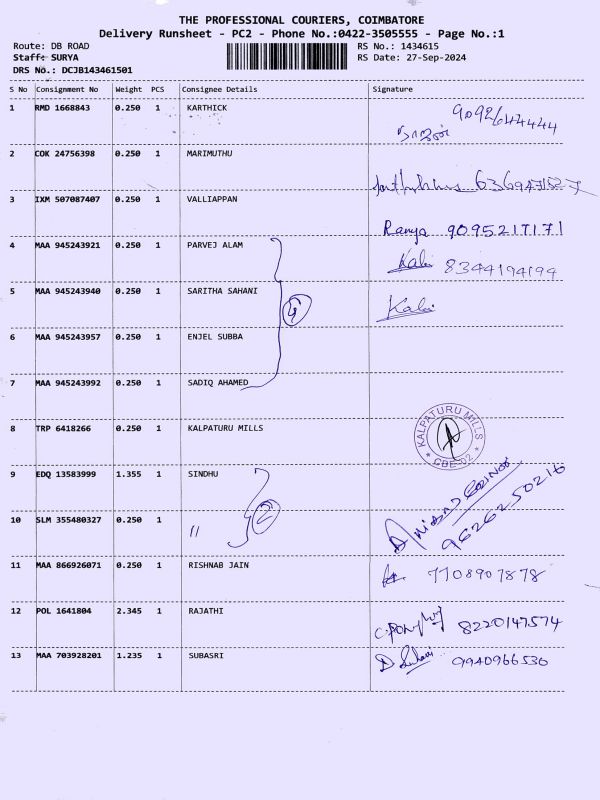 THE PROFESSIONAL COURIERS, COIMBATORE
Delivery Runsheet - PC2 - Phone No.:0422-3505555 - Page No.:1
Route: DB ROAD
RS No.: 1434615
Staff: SURYA
RS Date: 27-Sep-2024
DRS No.: DCJB143461501
S No Consignment No Weight PCS Consignee Details Signature
1 RMD 1668843 0.250 1 KARTHICK
2 COK 24756398 0.250 1 MARIMUTHU
3 IXM 507087407 0.250 1 VALLIAPPAN
Ranya 9095217171
4 MAA 945243921 0.250 1 PARVEJ ALAM Kabi 8344194194
5 MAA 945243940 0.250 1 SARITHA SAHANI 4 Kabi
6 MAA 945243957 0.250 1 ENJEL SUBBA
7 MAA 945243992 0.250 1 SADIQ AHAMED
8 TRP 6418266 0.250 1 KALPATURU MILLS KALPATURU MILLS * CBE-02 *
9 EDQ 13583999 1.355 1 SINDHU
9626250216
10 SLM 355480327 0.250 1 " 2
11 MAA 866926071 0.250 1 RISHNAB JAIN 7708907878
12 POL 1641804 2.345 1 RAJATHI 8220147574
13 MAA 703928201 1.235 1 SUBASRI 9940966536